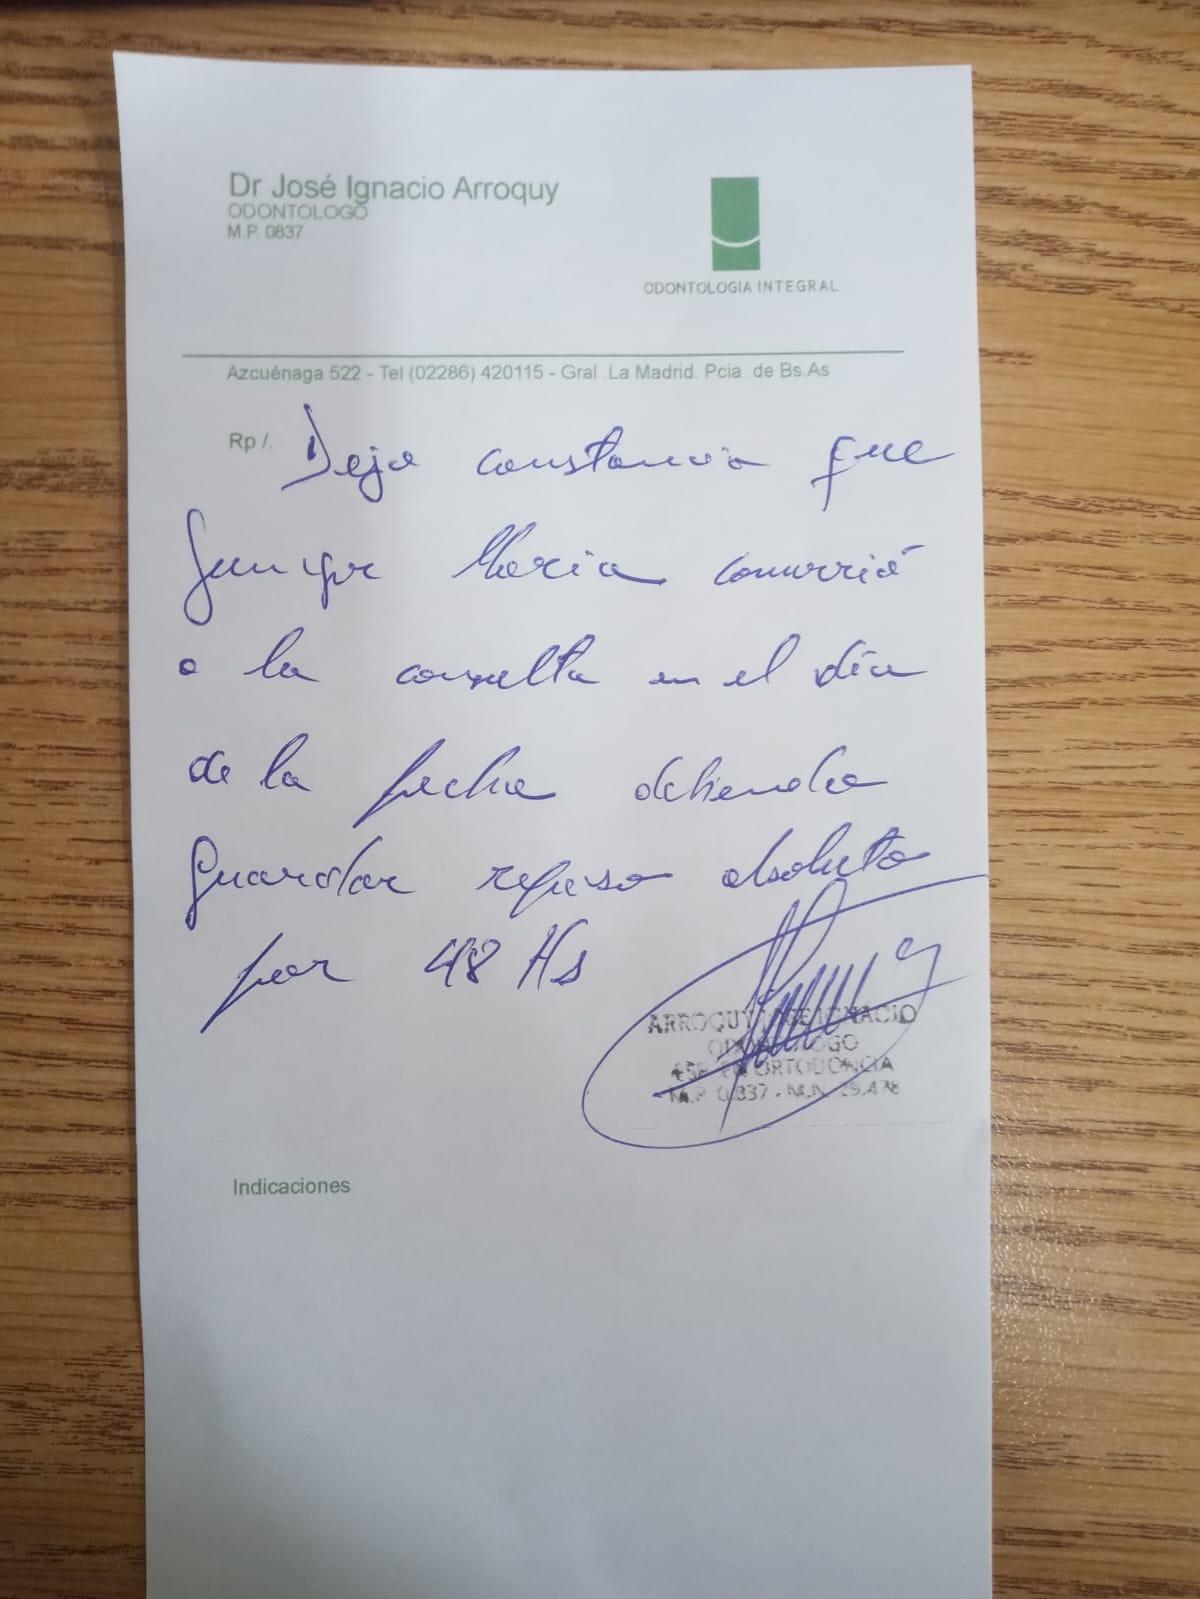 Dr José Ignacio Arroquy
ODONTOLOGO
M.P. 0837
ODONTOLOGIA INTEGRAL
Azcuénaga 522 - Tel (02286) 420115 - Gral .La Madrid. Pcia. de Bs.As
Rp /. Dejo constancia que
Maria concurrió
a la consulta en el día
de la fecha debiendo
guardar reposo absoluto
por 48 Hs
ARROQUY JOSE IGNACIO
ODONTOLOGO
ESP. EN ORTODONCIA
M.P. 0837 - M.N. 29.478
Indicaciones